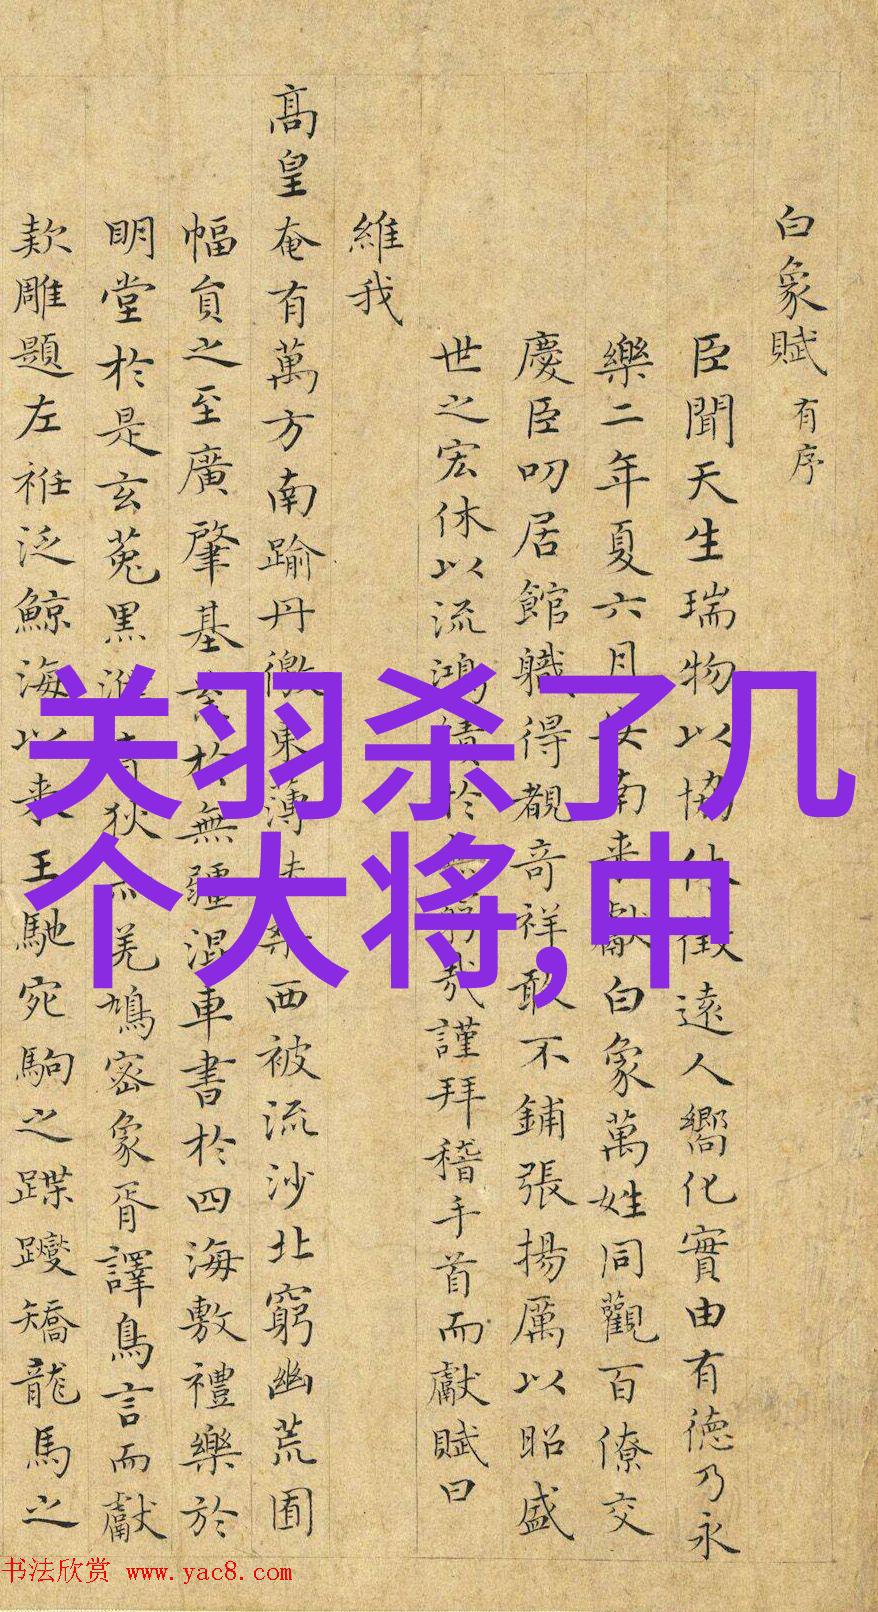 白象賦 有序
臣聞天生瑞物以協休徵遠人嚮化實由有德乃永
樂二年夏六月安南來獻白象萬姓同觀百僚交
慶臣叨居館職得覩奇祥敢不鋪張揚厲以昭盛
世之宏休以流鴻績於哉謹拜稽手首而獻賦曰
維我
高皇奄有萬方南踰丹徼東薄西被流沙北窮幽荒囿
幅員之至廣肇基於無疆混車書於四海敷禮樂於
明堂於是玄菟黑狄羌鳩密象胥譯鳥言而獻
款雕題左袵泛鯨海以來王馳宛駒之蹀躞矯龍馬之
关羽杀了几
个大将,中
书法欣赏 www.yac8.com